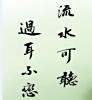 流水可聽
過耳不戀